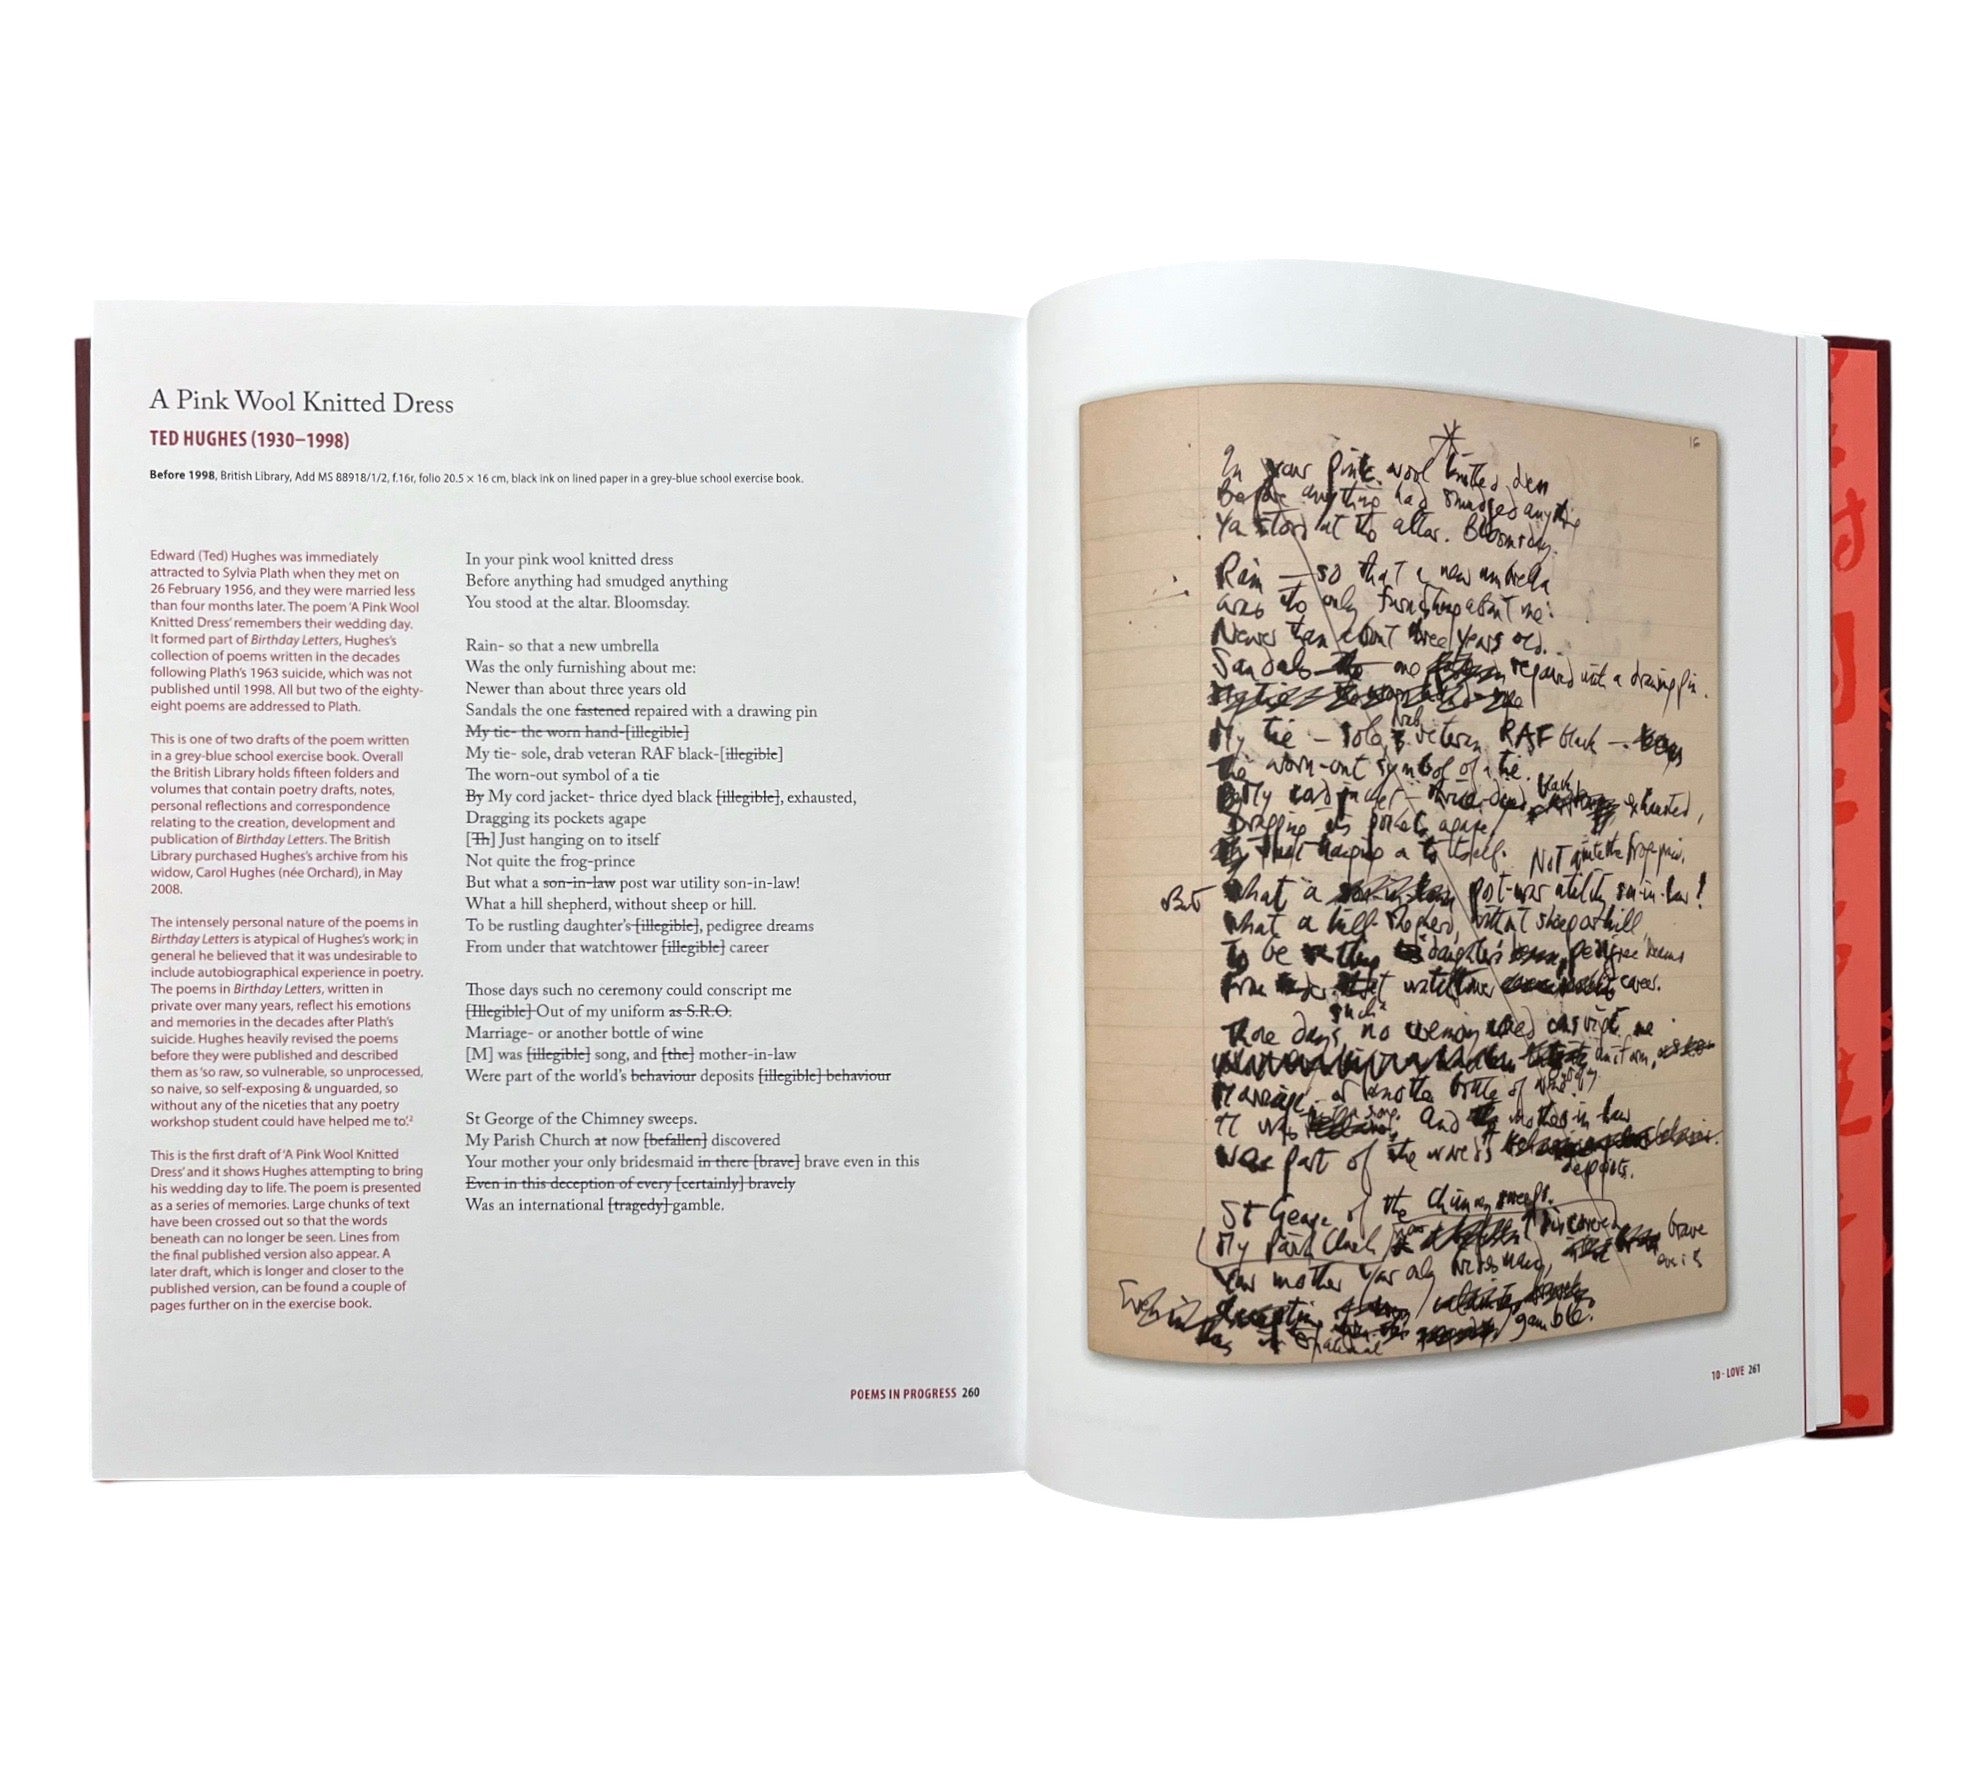 A Pink Wool Knitted Dress
TED HUGHES (1930–1998)
Before 1998, British Library, Add MS 88918/1/2, f.16r, folio 20.5 × 16 cm, black ink on lined paper in a grey-blue school exercise book.
Edward (Ted) Hughes was immediately
attracted to Sylvia Plath when they met on
26 February 1956, and they were married less
than four months later. The poem ‘A Pink Wool
Knitted Dress’ remembers their wedding day.
It formed part of Birthday Letters, Hughes’s
collection of poems written in the decades
following Plath’s 1963 suicide, which was not
published until 1998. All but two of the eighty-
eight poems are addressed to Plath.
This is one of two drafts of the poem written
in a grey-blue school exercise book. Overall
the British Library holds fifteen folders and
volumes that contain poetry drafts, notes,
personal reflections and correspondence
relating to the creation, development and
publication of Birthday Letters. The British
Library purchased Hughes’s archive from his
widow, Carol Hughes (née Orchard), in May
2008.
The intensely personal nature of the poems in
Birthday Letters is atypical of Hughes’s work; in
general he believed that it was undesirable to
include autobiographical experience in poetry.
The poems in Birthday Letters, written in
private over many years, reflect his emotions
and memories in the decades after Plath’s
suicide. Hughes heavily revised the poems
before they were published and described
them as ‘so raw, so vulnerable, so unprocessed,
so naive, so self-exposing & unguarded, so
without any of the niceties that any poetry
workshop student could have helped me to’.²
This is the first draft of ‘A Pink Wool Knitted
Dress’ and it shows Hughes attempting to bring
his wedding day to life. The poem is presented
as a series of memories. Large chunks of text
have been crossed out so that the words
beneath can no longer be seen. Lines from
the final published version also appear. A
later draft, which is longer and closer to the
published version, can be found a couple of
pages further on in the exercise book.
In your pink wool knitted dress
Before anything had smudged anything
You stood at the altar. Bloomsday.
Rain- so that a new umbrella
Was the only furnishing about me:
Newer than about three years old
Sandals the one fastened repaired with a drawing pin
My tie- the worn hand-[illegible]
My tie- sole, drab veteran RAF black-[illegible]
The worn-out symbol of a tie
By My cord jacket- thrice dyed black [illegible], exhausted,
Dragging its pockets agape
[Th] Just hanging on to itself
Not quite the frog-prince
But what a son-in-law post war utility son-in-law!
What a hill shepherd, without sheep or hill.
To be rustling daughter’s [illegible], pedigree dreams
From under that watchtower [illegible] career
Those days such no ceremony could conscript me
[Illegible] Out of my uniform as S.R.O.
Marriage- or another bottle of wine
[M] was [illegible] song, and [the] mother-in-law
Were part of the world’s behaviour deposits [illegible] behaviour
St George of the Chimney sweeps.
My Parish Church at now [befallen] discovered
Your mother your only bridesmaid in there [brave] brave even in this
Even in this deception of every [certainly] bravely
Was an international [tragedy] gamble.
POEMS IN PROGRESS 260
16
In your pink wool knitted dress
Before anything had smudged anything
You stood at the altar. Bloomsday.
Rain — so that a new umbrella
was the only furnishing about me:
Newer than about three years old.
Sandals — the one repaired with a drawing pin.
My tie — sole, drab veteran RAF black —
The worn-out symbol of a tie.
My cord jacket — thrice-dyed black exhausted,
Dragging its pockets agape
Just hanging on to itself. Not quite the frog-prince,
But What a post-war utility son-in-law!
What a hill-shepherd, without sheep or hill,
To be daughter's pedigree dreams
From under that watchtower career.
Those days such no ceremony could conscript me
uniform,
Marriage, or another bottle of
and the mother-in-law
were part of the world's
deposits.
St George of the Chimney sweeps.
My Parish Church now discovered brave
Your mother your only bridesmaid, even in
gamble.
10 - LOVE 261